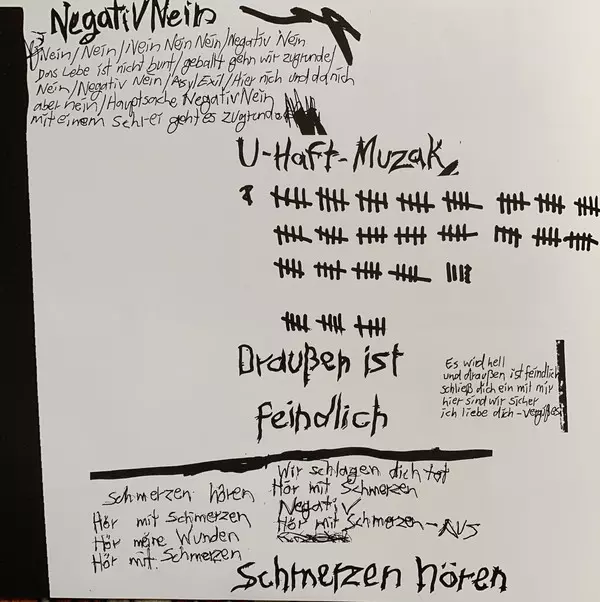 NegatiV Nein
Nein/Nein/Nein Nein Nein/Negativ Nein
Das Lebe ist nicht bunt/geballt gehn wir zugrunde/
Nein/Negativ Nein/Asyl/Exil/Hier nich und da nich
aber nein/Hauptsache NegativNein
mit einem Schrei geht es zugrunde
U-Haft-Muzak
Draußen ist
feindlich
Es wird hell
und draußen ist feindlich
schließ dich ein mit mir
hier sind wir sicher
ich liebe dich - vergißes
Schmerzen hören
Hör mit Schmerzen
Hör meine Wunden
Hör mit Schmerzen
Wir schlagen dich tot
Hör mit Schmerzen
Negativ
Hör mit Schmerzen-AUS
Schmerzen hören